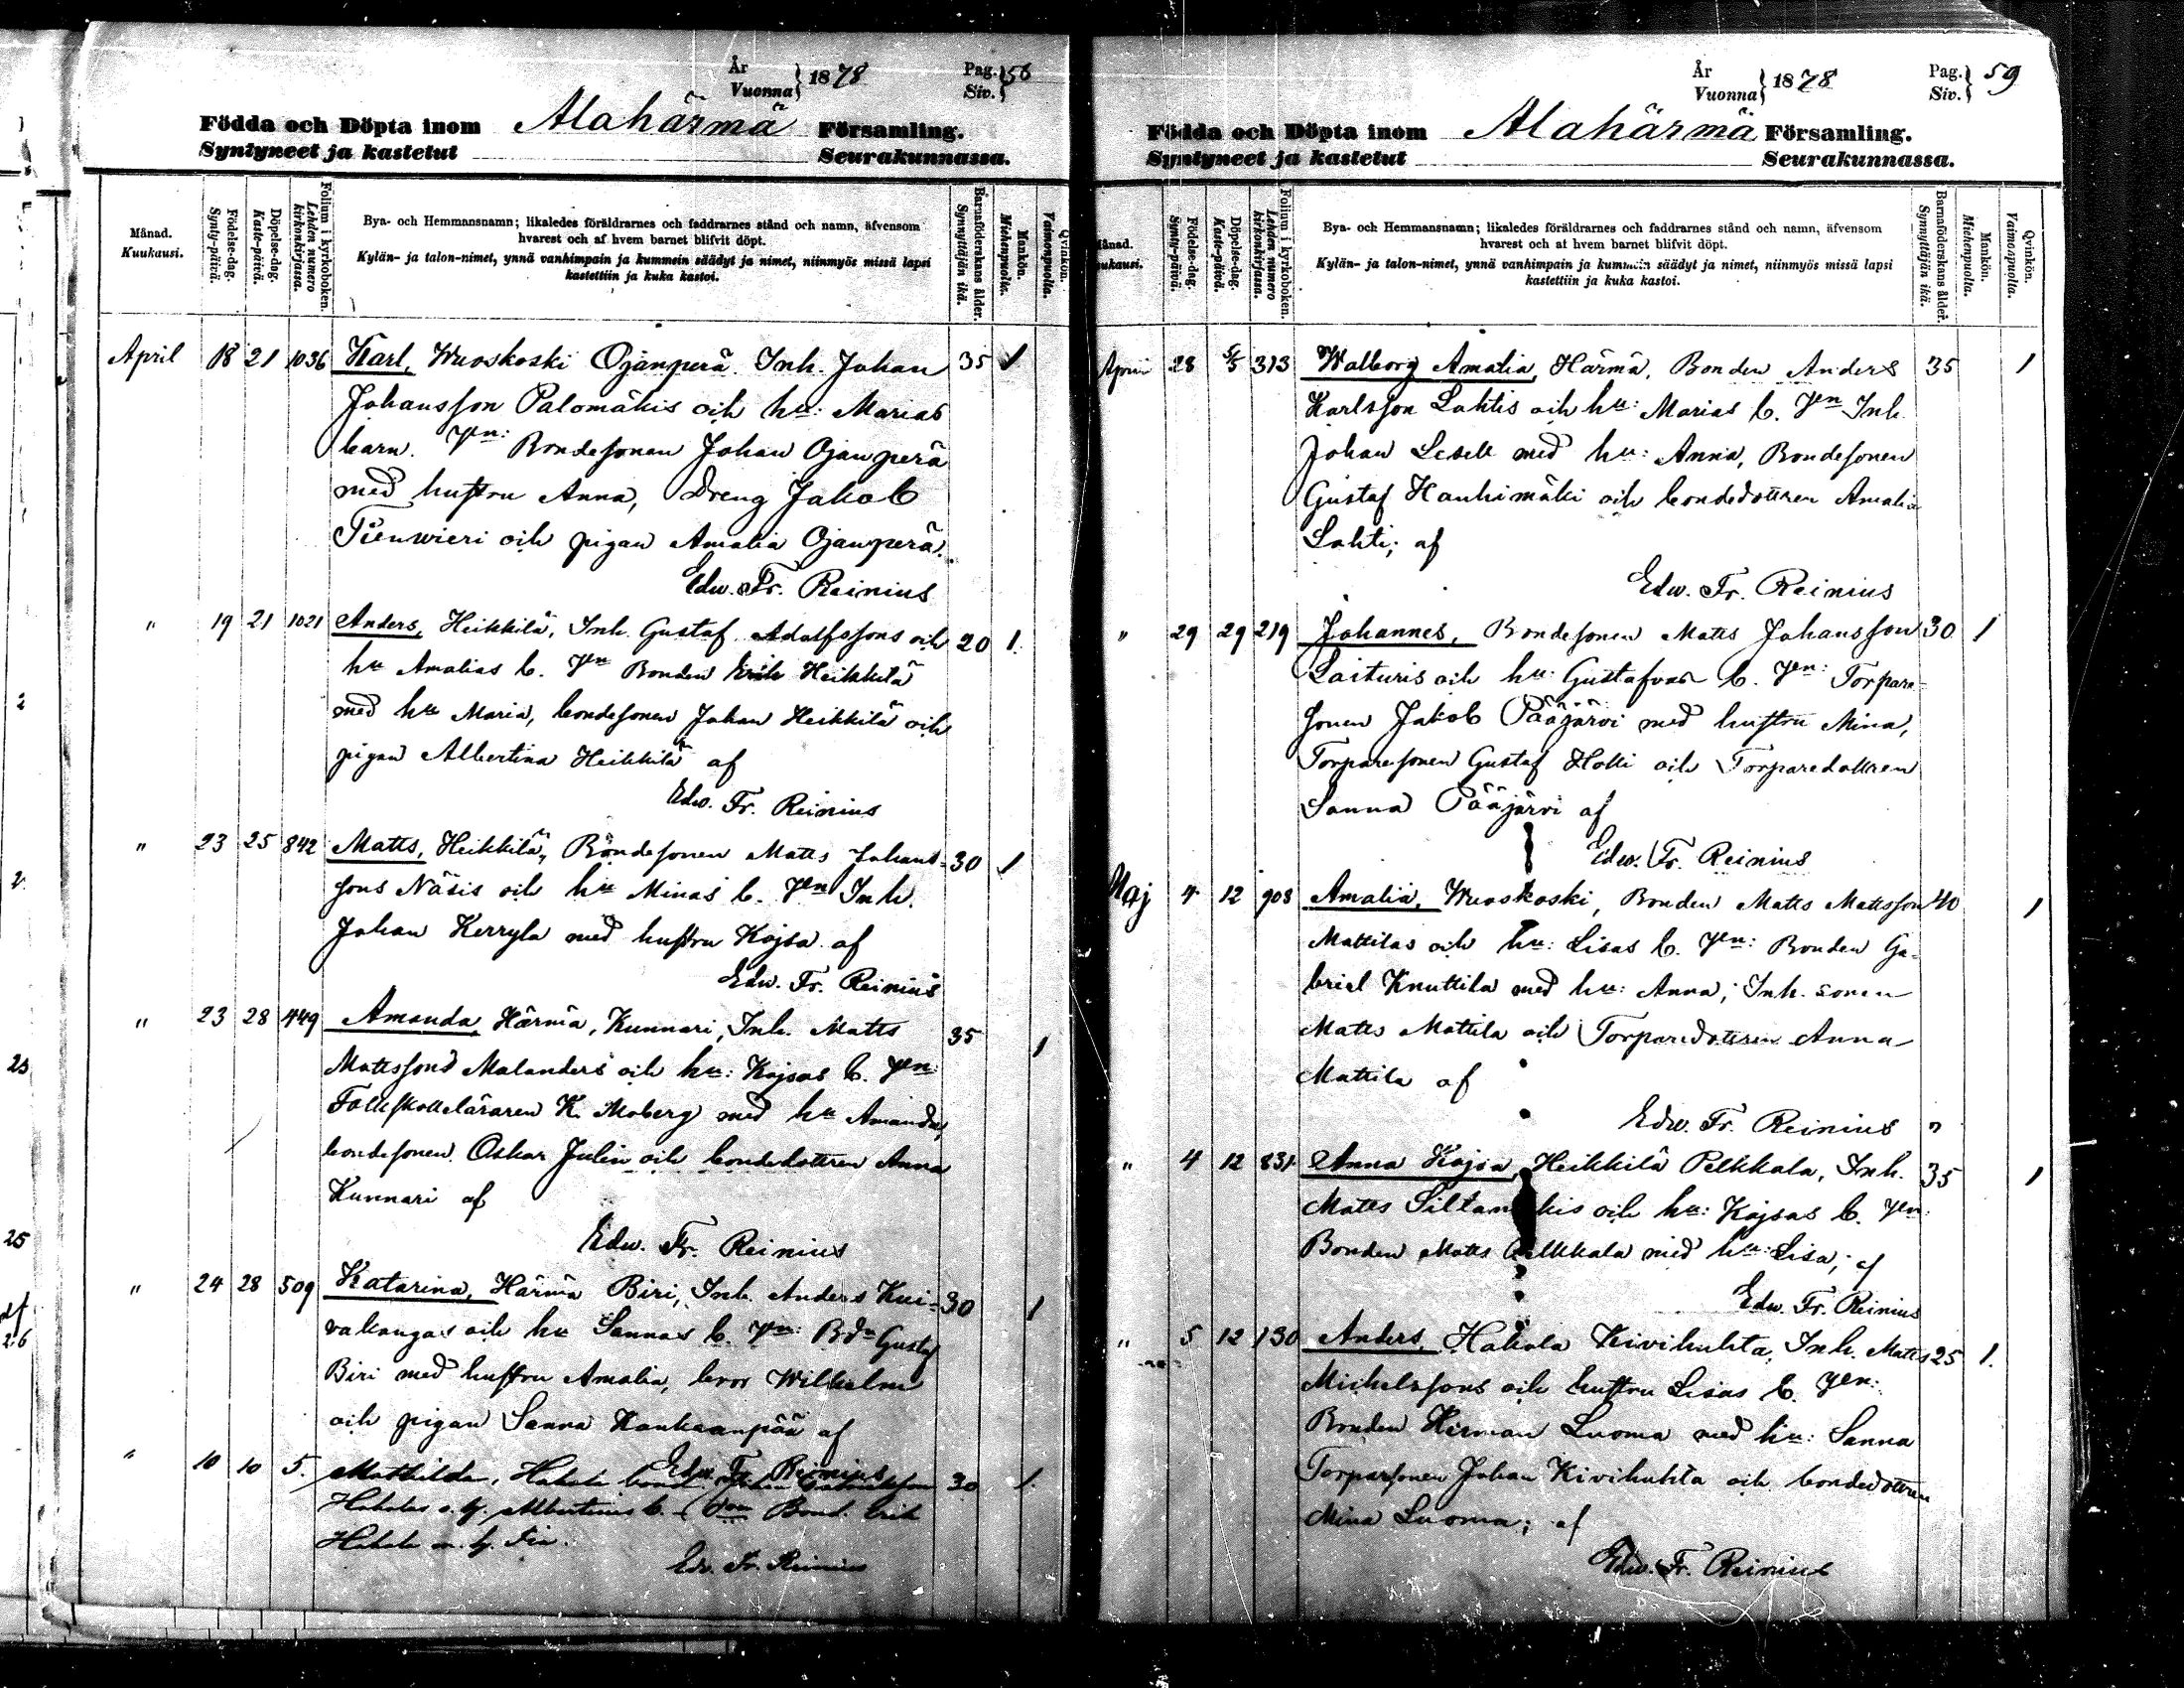 År
Vuonna} 1878
Pag.
Siv.} 58
Födda och Döpta inom Alahärmä Församling.
Syntyneet ja kastetut Seurakunnassa.
Månad.
Kuukausi.
Födelse-dag.
Synty-päivä.
Döpelse-dag.
Kaste-päivä.
Folium i kyrkoboken.
Lehden numero kirkonkirjassa.
Bya- och Hemmansnamn; likaledes föräldrarnes och faddrarnes stånd och namn, äfvensom
hvarest och af hvem barnet blifvit döpt.
Kylän- ja talon-nimet, ynnä vanhimpain ja kummein säädyt ja nimet, niinmyös missä lapsi
kastettiin ja kuka kastoi.
Barnaföderskans ålder.
Synnyttäjän ikä.
Mankön.
Miehenpuolta.
Qvinkön.
Vaimonpuolta.
April 18 21 1036 Karl, Wuoskoski Ojanperä. Inh. Johan 35 1
Johansson Palomäkis och hu: Marias
barn. Vn: Bondesonen Johan Ojanperä
med hustru Anna, Dreng Jakob
Tienwieri och pigan Amalia Ojanperä.
Edw. Fr. Reinius
" 19 21 1021 Anders, Heikkilä, Inh. Gustaf Adolfssons och 20 1.
hu Amalias b. Vn Bonden Erik Heikkilä
med hu Maria, bondesonen Johan Heikkilä och
pigan Albertina Heikkilä af
Edw. Fr. Reinius
" 23 25 842 Matts, Heikkilä, Bondesonen Matts Johans- 30 1
sons Näsis och hu Minas b. Vn Inh.
Johan Kerryla med hustru Kajsa af
Edw. Fr. Reinius
" 23 28 449 Amanda, Härmä, Kunnari, Inh. Matts 35 1
Mattssons Malanders och hu: Kajsas b. Vn:
Folkskolläraren K. Moberg med hu Amanda,
bondesonen Oskar Julin och bondedottren Anna
Kunnari af
Edw. Fr. Reinius
" 24 28 509 Katarina, Härmä Biri, Inh. Anders Kui- 30 1
vakangas och hu Sannas b. Vn: Bdn Gustaf
Biri med hustru Amalia, bror Wilhelm
och pigan Sanna Kankaanpää af
Edw. Fr. Reinius
" 10 10 5. Mathilda, Hakola bond. Johan 30 1.
Hakolas o. h. Albertinas b. Vn Bond. Erik
Hakola m. h. Fia.
Edv. Fr. Reinius
År
Vuonna} 1878
Pag.
Siv.} 59
Födda och Döpta inom Alahärmä Församling.
Syntyneet ja kastetut Seurakunnassa.
Månad.
Kuukausi.
Födelse-dag.
Synty-päivä.
Döpelse-dag.
Kaste-päivä.
Folium i kyrkoboken.
Lehden numero kirkonkirjassa.
Bya- och Hemmansnamn; likaledes föräldrarnes och faddrarnes stånd och namn, äfvensom
hvarest och af hvem barnet blifvit döpt.
Kylän- ja talon-nimet, ynnä vanhimpain ja kummein säädyt ja nimet, niinmyös missä lapsi
kastettiin ja kuka kastoi.
Barnaföderskans ålder.
Synnyttäjän ikä.
Mankön.
Miehenpuolta.
Qvinkön.
Vaimonpuolta.
April 28 5/5 313 Walborg Amalia, Härmä, Bonden Anders 35 1
Karlsson Lahtis och hu: Marias b. Vn Inh.
Johan Lesell med hu: Anna, Bondesonen
Gustaf Hanhimäki och bondedottren Amalia
Lahti; af
Edw. Fr. Reinius
" 29 29 219 Johannes, Bondesonen Matts Johansson 30 1
Laituris och hu: Gustafvas b. Vn: Torpare-
sonen Jakob Pääjärvi med hustru Mina,
Torparesonen Gustaf Holti och Torparedottren
Sanna Pääjärvi af
Edw. Fr. Reinius
Maj 4 12 903 Amalia, Wuoskoski, Bonden Matts Mattsson 40 1
Mattilas och hu: Lisas b. Vn: Bonden Ga-
briel Knuttila med hu: Anna, Inh. sonen
Matts Mattila och Torparedottren Anna
Mattila af
Edw. Fr. Reinius
" 4 12 831 Anna Kajsa, Heikkilä Pelkkala, Inh. 35 1
Matts Siltamäkis och hu: Kajsas b. Vn:
Bonden Matts Pelkkala med hu: Lisa; af
Edw. Fr. Reinius
" 5 12 130 Anders, Hakola Kivihuhta, Inh. Matts 25 1.
Michelssons och hustru Lisas b. Vn:
Bonden Herman Luoma med hu: Sanna
Torparsonen Johan Kivihuhta och bondedottren
Mina Luoma; af
Edw. Fr. Reinius